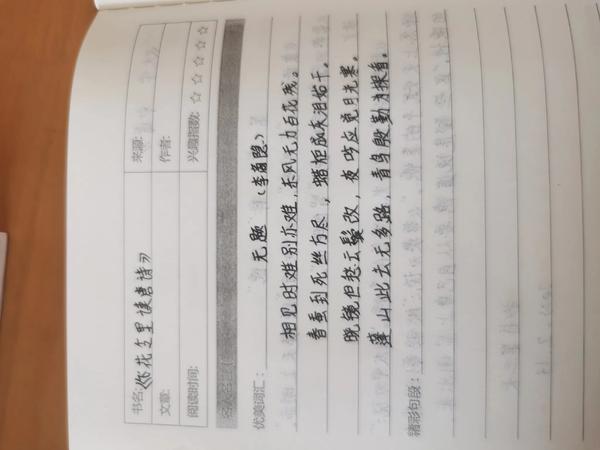 书名:《飞花令里读唐诗》 来源:
文章: 作者:
阅读时间: 兴趣指数: ☆ ☆ ☆ ☆ ☆
优美词汇:
无题 (李商隐)
相见时难别亦难,东风无力百花残。
春蚕到死丝方尽,蜡炬成灰泪始干。
晓镜但愁云鬓改,夜吟应觉月光寒。
蓬山此去无多路,青鸟殷勤为探看。
精彩句段: